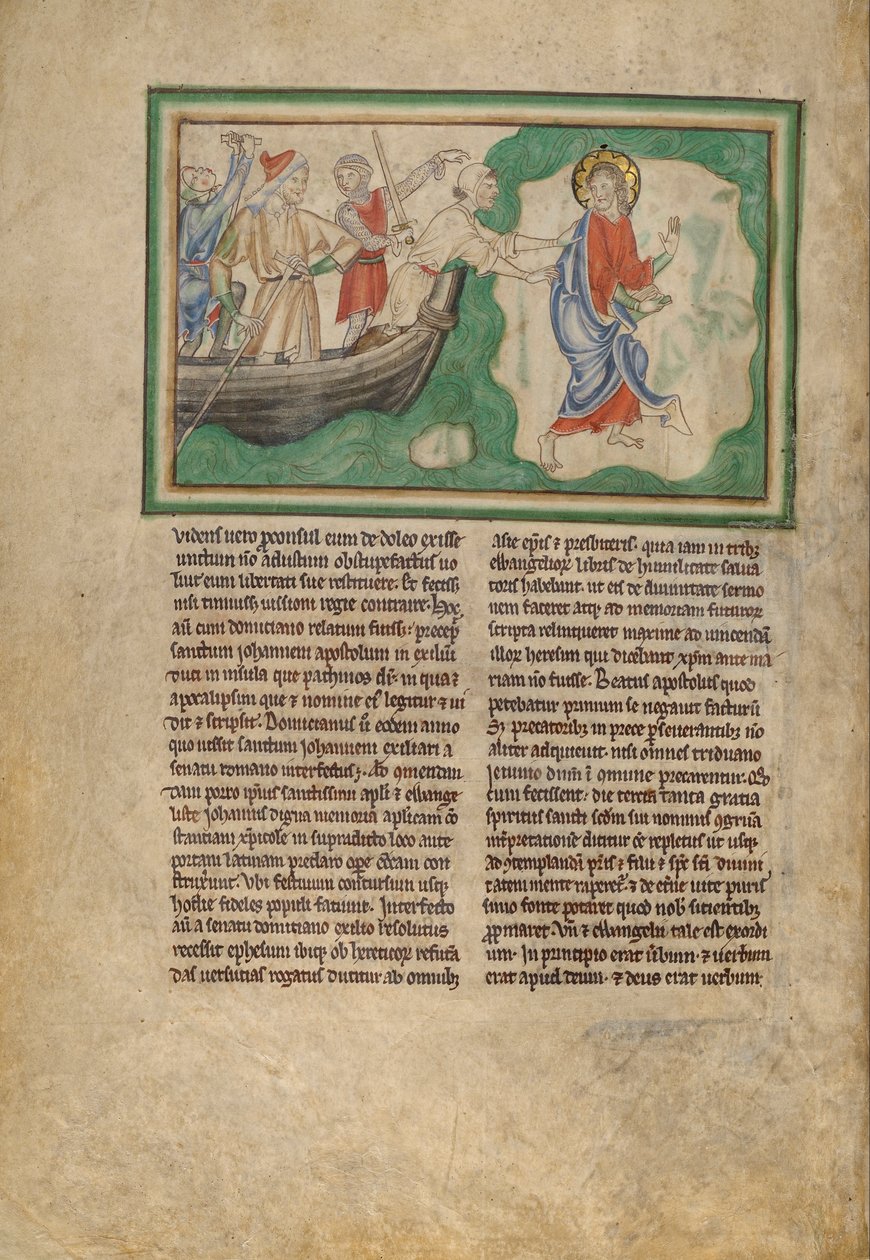 videns uero ꝓconsul eum de doleo exisse
unctum nõ adustum obstupefactus uo
luit eum libertati sue restituere. Et fecisset
nisi timuisset iussioni regie contraire. Hoc
aũ cum domiciano relatum fuisset: precepit
sanctum iohannem apostolum in exiliũ
duci in insula que pathmos dr̃. in qua ⁊
apocalipsim que ⁊ nomine eĩ legitur ⁊ ui
dit ⁊ scripsit. Domicianus ũ eodem anno
quo iussit sanctum iohannem exiliari a
senatu romano interfectus ẽ. Ad ꝯmendan
dam porro ipsius sanctissimi apl̃i ⁊ ewange
liste iohannis digna memoria apl̃icam cõ
stantiam xp̃icole in supradicto loco ante
portam latinam preclaro oꝑe eccl̃iam con
struxerunt. Vbi festiuum concursum usqꝫ
hodie fideles populi faciunt. Interfecto
aũ a senatu domiciano exilio resolutus
recessit ephesum ibiqꝫ ob hereticoꝝ refuta
das uersutias rogatus dicitur ab omnibꝫ
asie ep̃is ⁊ presbiteris. quia iam in tribꝫ
ewangelioꝝ libris de humilitate salua
toris habebunt. ut eis de diuinitate sermo
nem faceret atqꝫ ad memoriam futuroꝝ
scripta relinqueret maxime ad uincendã
illoꝝ heresim qui dicebant xp̃m ante ma
riam nõ fuisse. Beatus apostolus quod
petebatur primum se negauit facturũ
Sꝫ precatoribꝫ in prece ꝑseuerantibꝫ nõ
aliter adquieuit. nisi om̃nes triduano
ieiunio dñm ĩ ꝯmune precarentur. Qd̃
cum fecissent: die tercia tanta gracia
spiritus sancti scd̃m sui nominis ꝯgruã
int̃pretatione dicitur eẽ repletus ut usqꝫ
ad ꝯtemplandã pr̃is ⁊ filii ⁊ sp̃c sc̃i diuini
tatem mente raperet̃. ⁊ de et̃ne uite puris
simo fonte potaret quod nob̃ sitientibꝫ
ꝓpinaret. Vñ ⁊ ewangelii tale est exordi
um. In principio erat ũbum. ⁊ uerbum
erat apud deum. ⁊ deus erat uerbum.